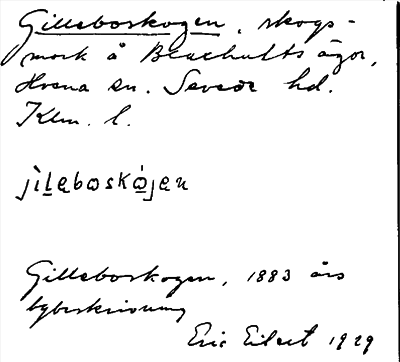 Gilleboskogen, skogs-
mark å Blaehults ägor,
Hvena sn. Sevede hd.
Klm. l.
jìlęboskójen
Gilleboskogen, 1883 års
bybeskrivning
Eric Eilert 1929